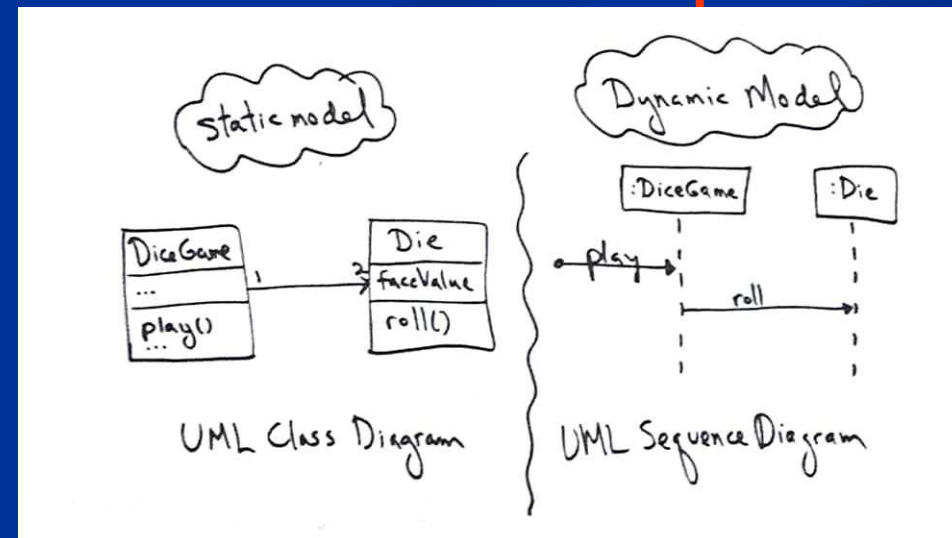 Static model
DiceGame
...
play()
...
1
2
Die
faceValue
roll()
UML Class Diagram
Dynamic Model
:DiceGame
:Die
play
roll
UML Sequence Diagram